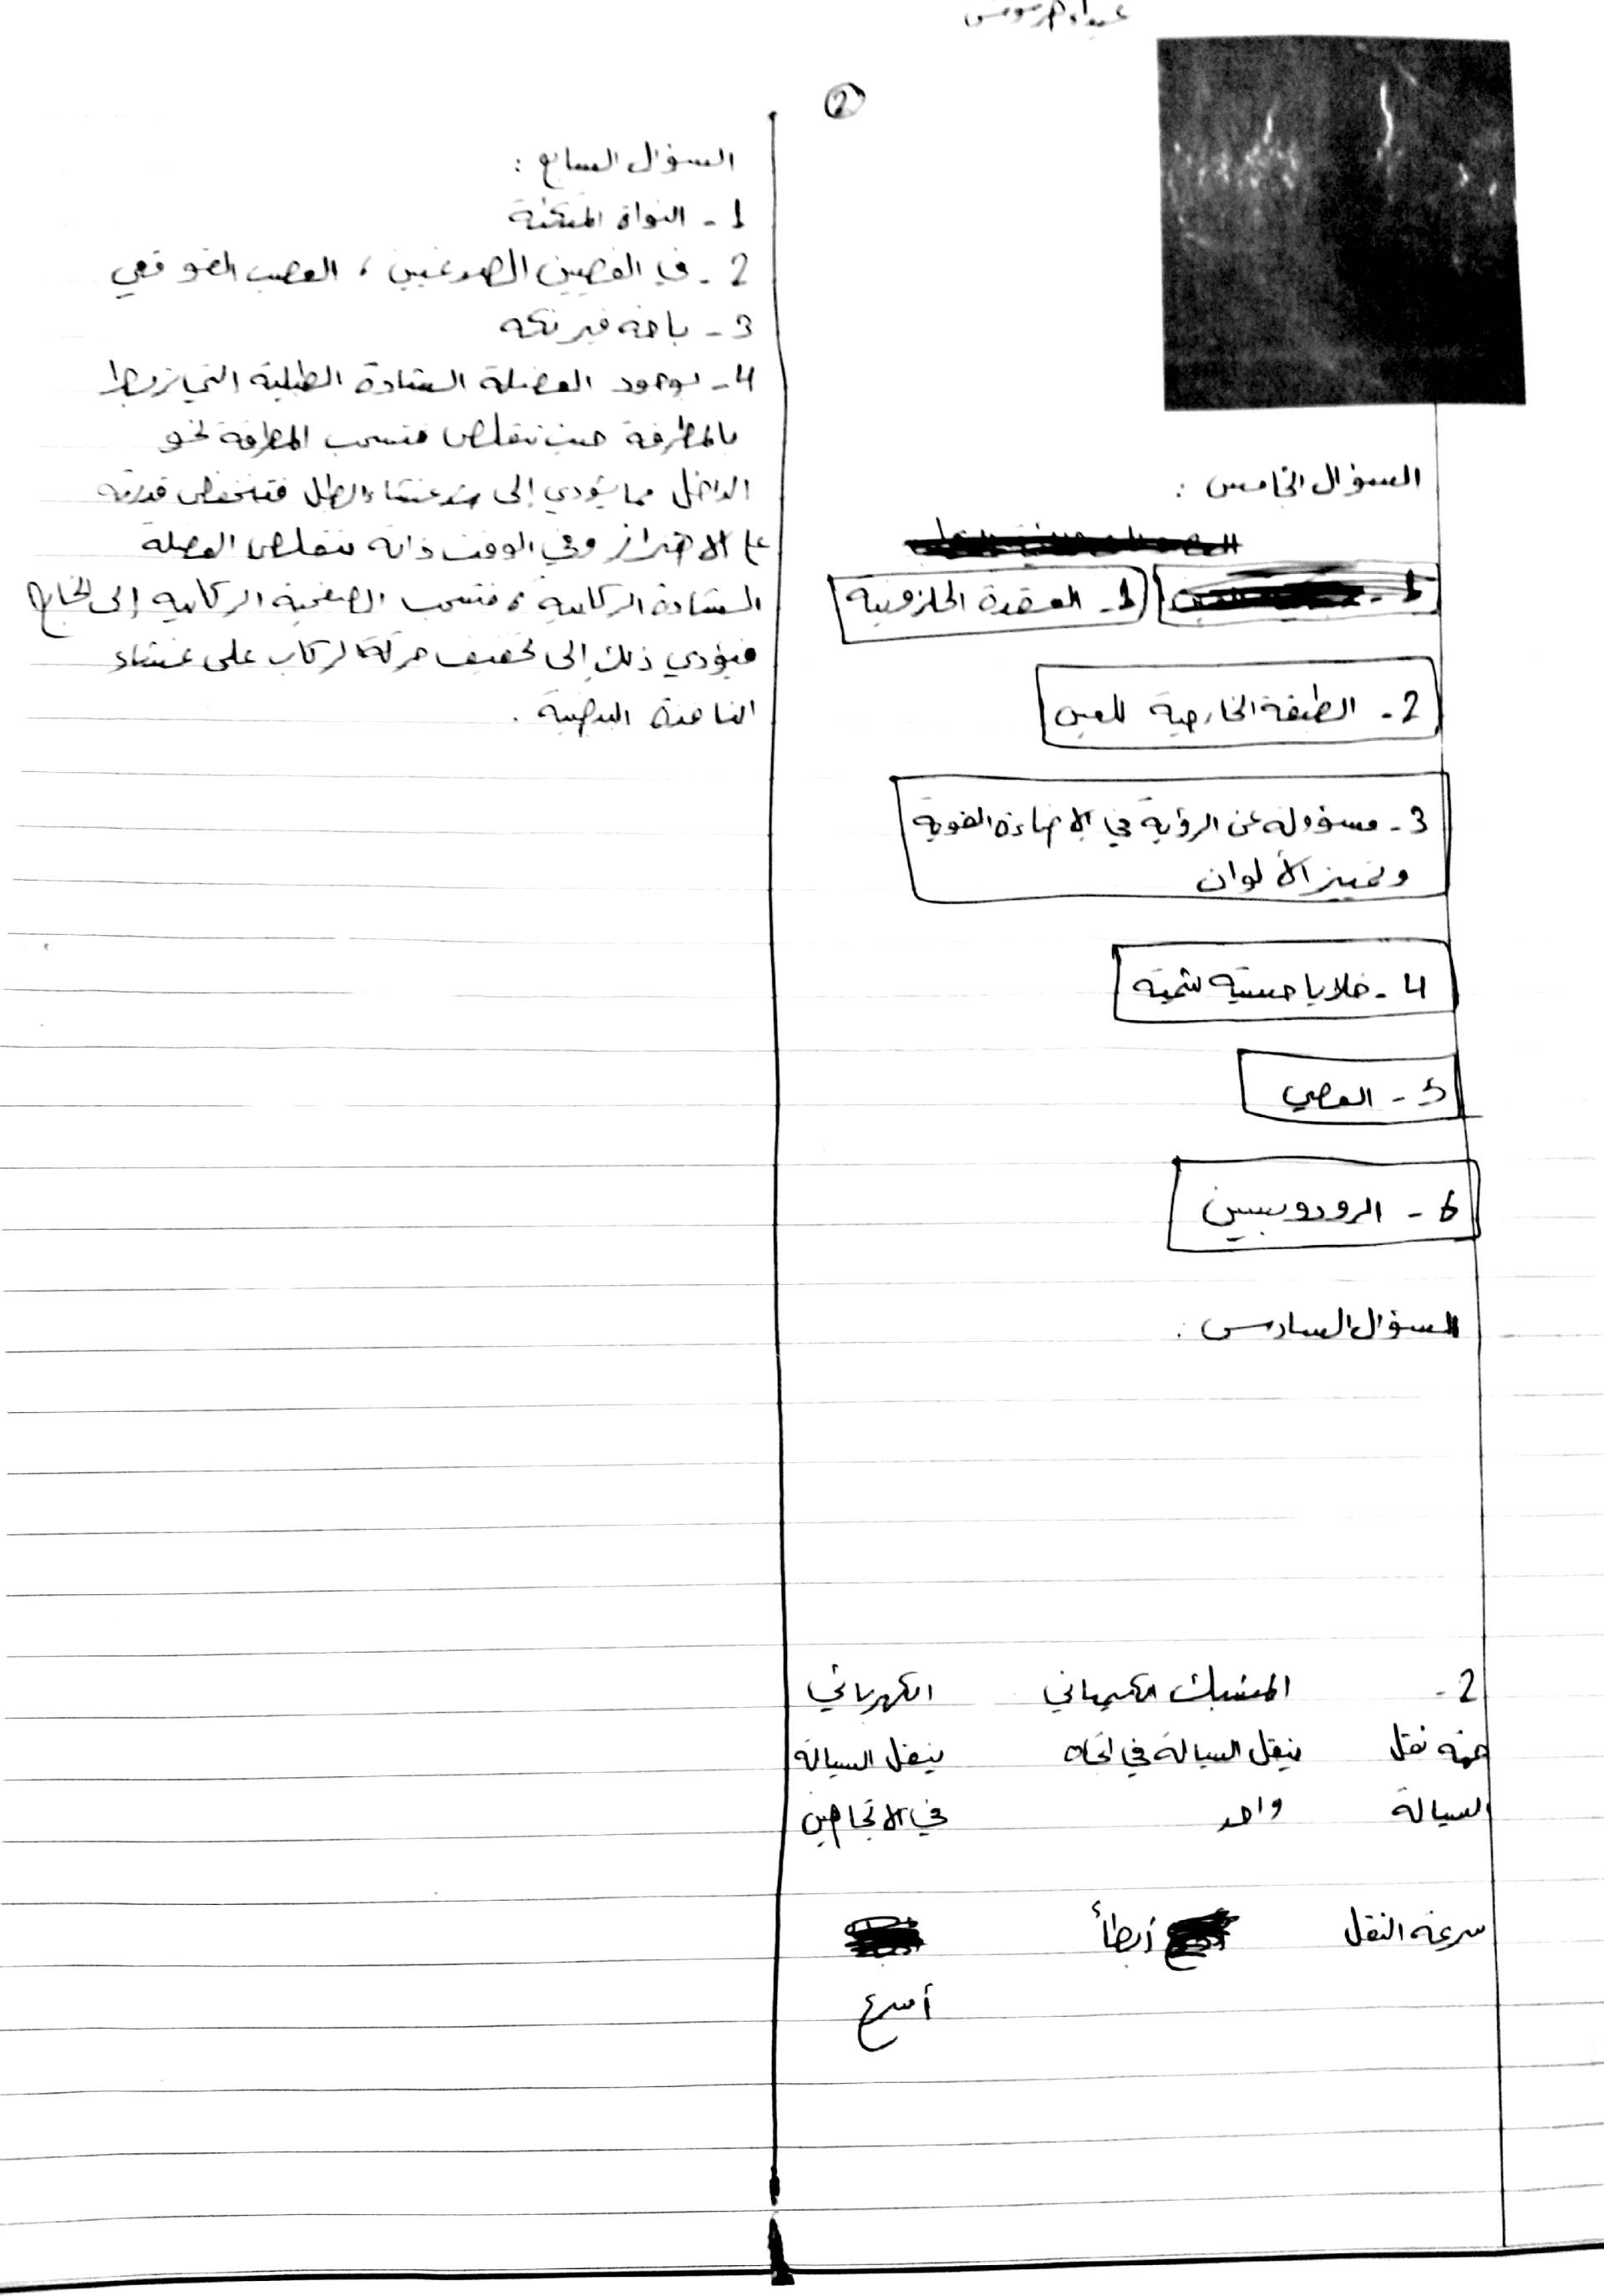 2
السؤال الخامس :
1- العقدة الحلزونية
2- الطبقة الخارجية للعين
3- مسؤولة عن الرؤية في الإضاءة القوية
وتمييز الألوان
4- خلايا حسية شمية
5- العصي
6- الرودوبسين
السؤال السادس :
2- المشبك الكيميائي الكهربائي
جهة نقل ينقل السيالة في اتجاه ينقل السيالة
السيالة واحد في الاتجاهين
سرعة النقل أبطأ
أسرع
السؤال السابع :
1- النواة
2- في الفصين الصدغيين ، العصب القوقعي
3- باحة فيرنكه
4- بوجود العضلة الشادة الطبلية التي تربط
بالمطرقة حيث تتقلص فتسحب المطرقة نحو
الداخل مما يؤدي إلى شد غشاء الطبل فتنخفض قدرته
على الاهتزاز وفي الوقت ذاته تتقلص العضلة
الشادة الركابية ، فتسحب الصفيحة الركابية إلى الخارج
فيؤدي ذلك إلى تخفيف حركة الركاب على غشاء
النافذة البيضية .